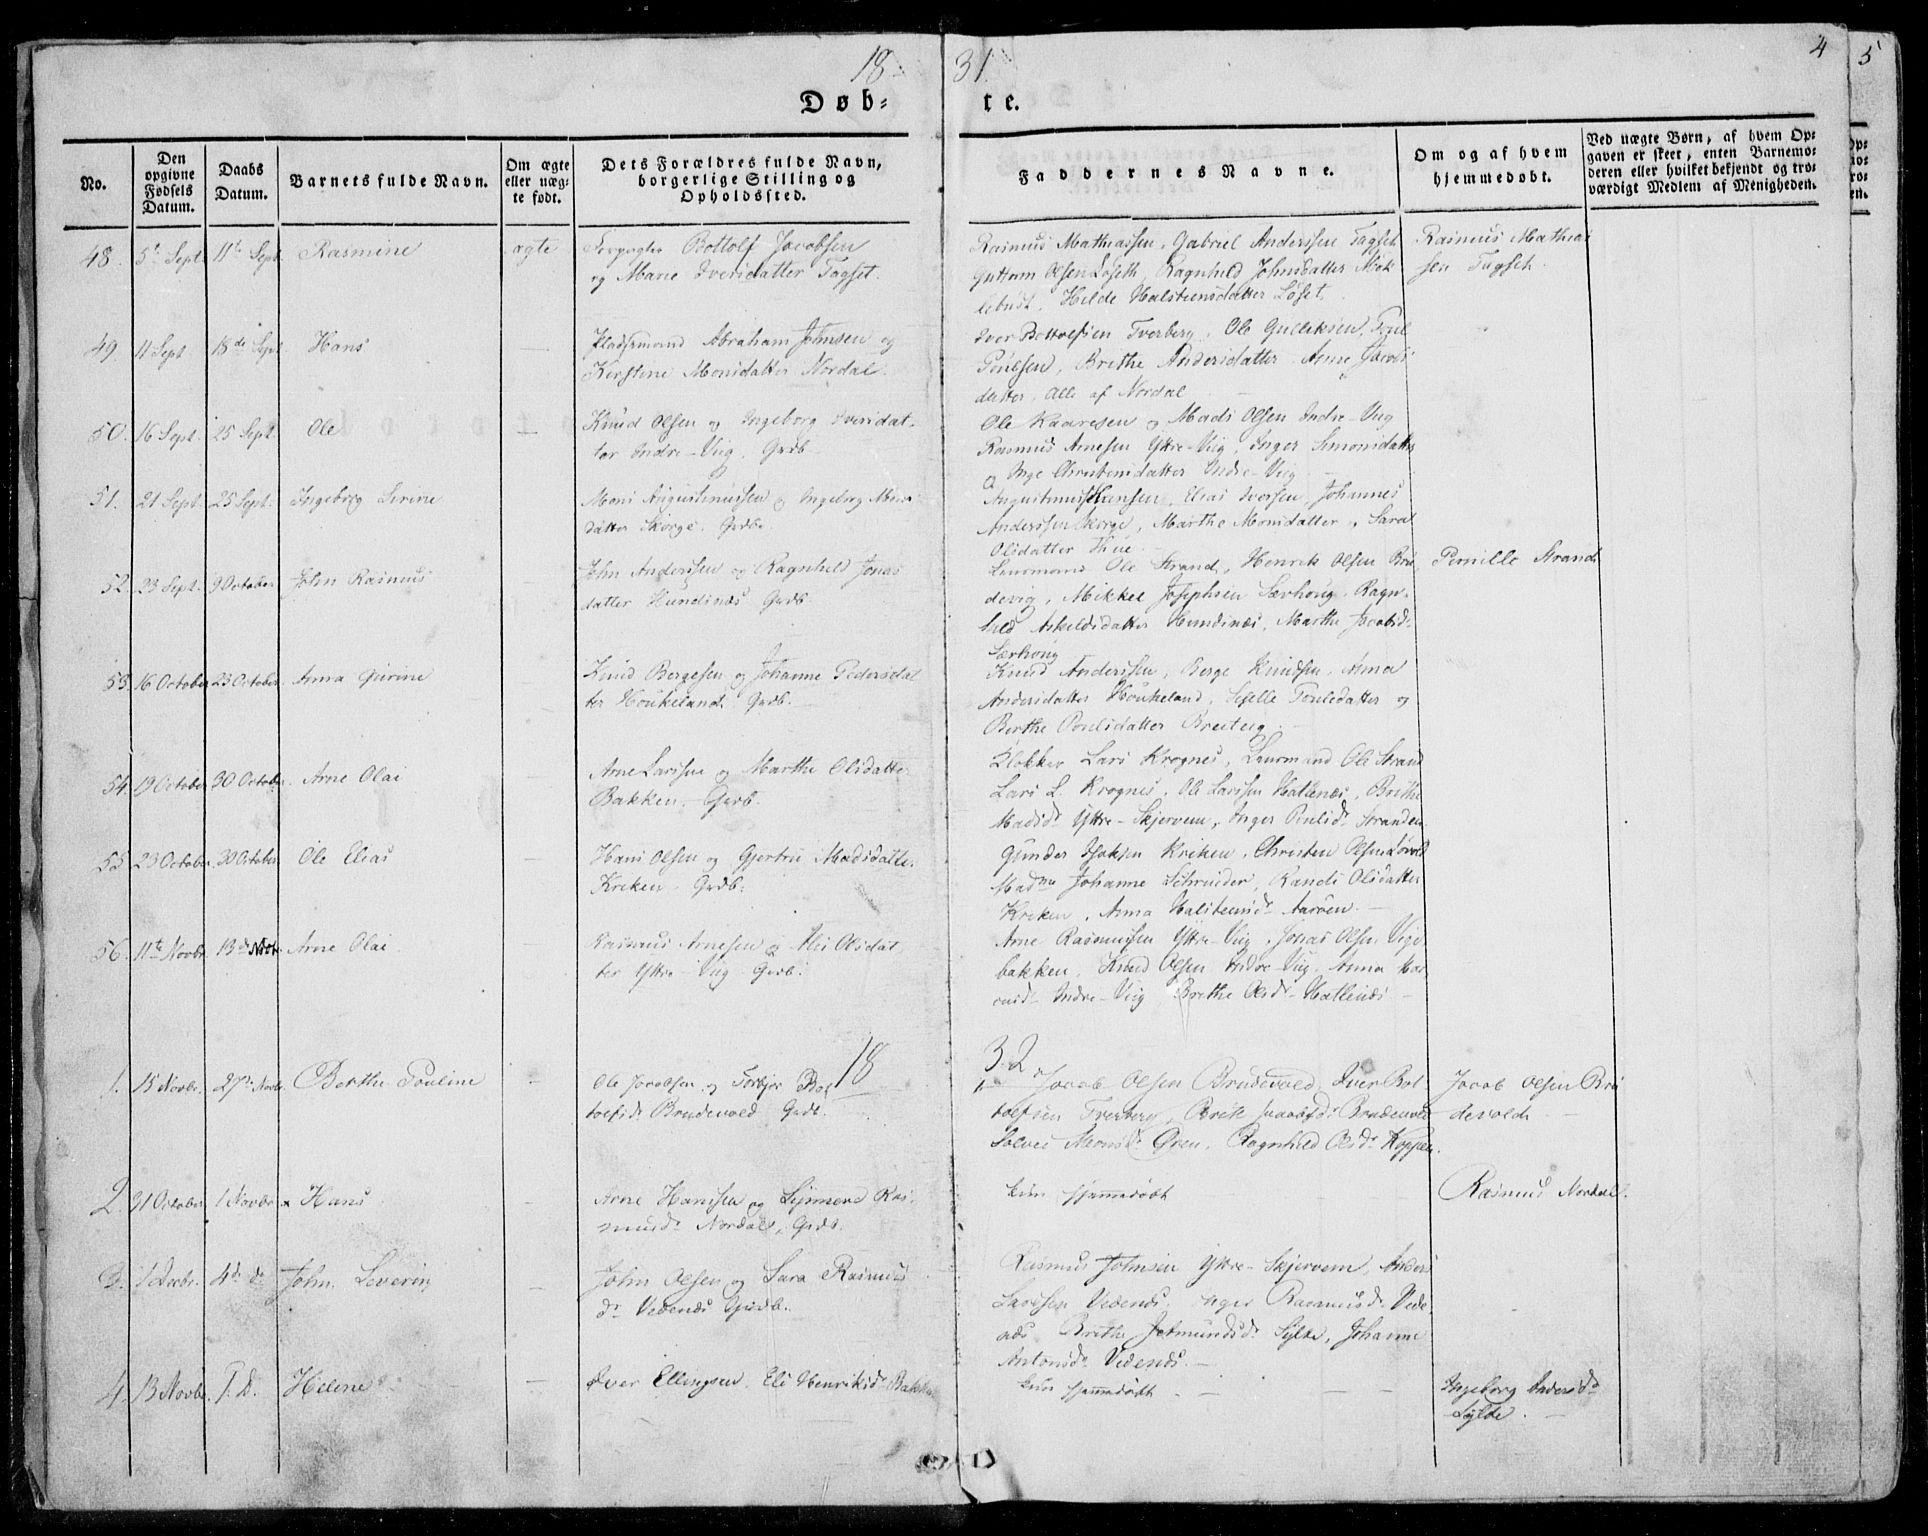 1831.
4
5
Døbte.
No.
Den opgivne Fødsels Datum.
Daabs Datum.
Barnets fulde Navn.
Om ægte eller uægte født.
Dets Forældres fulde Navn, borgerlige Stilling og Opholdssted.
Faddernes Navne.
Om og af hvem hjemmedøbt.
Ved uægte Børn, af hvem Opgaven er skeet, enten Barnemoderen eller hvilket bekjendt og troværdigt Medlem af Menigheden.
48. 5te Sept. 11te Sept. Rasmine ægte Bottolf Jacobsen
og Marie Iversdatter Tagset.
Rasmus Mathiassen, Gabriel Anderssen Tagset
Guttorm Olsen Løseth, Ragnhild Johnsdatter Møk
lebust, Hilde Halsteensdatter Løset.
Rasmus Mathias
sen Tagseth.
49. 11 Sept. 18de Sept. Hans — Pladsemand Abraham Johnsen og
Kirstine Monsdatter Nordal.
Iver Bottolfsen Tverberg, Ole Gulliksen, Poul
Poulsen, Brithe Andersdatter, Anne Jacobs
datter, alle af Nordal
50. 16 Sept. 25 Sept. Ole — Knud Olsen og Ingeborg Iversdat-
ter Indre-Viig, Grdb.
Ole Kaaresen og Mads Olsen Indre-Viig
Rasmus Arnesen Yttre-Viig, Inger Simonsdatter
og Inge Christensdatter Indre-Viig
51. 21 Sept. 25 Sept. Ingeborg Sirine Mons Augustinussen og Ingeborg Mons
datter Skorge. Grdb.
Augustinus Hansen, Elias Iversen, Johannes
Anderssen Skorge, Marthe Monsdatter, Sara
Olsdatter Thue
52. 23 Sept. 9 October. John Rasmus John Anderssen og Ragnhild Jonas
datter Hundsnæs, Grdb.
Leensmand Ole Strand, Henrik Olsen Bru
devig, Mikkel Josephsen Særhoug, Ragn-
hild Askeldsdatter Hundsnæs, Marthe Jacobsdr
Særhoug
Pernille Strand
53. 16 October 23 October. Anna Gurine Knud Bergesen og Johanne Pedersdat
ter Houkeland, Grdb.
Knud Anderssen, Berge Knudsen, Anna
Andersdatter Houkeland, Sselle Poulsdatter og
Berthe Poulsdatter Breiteig
54. 19 October 30 October. Arne Olai — Arne Larssen og Marthe Olsdatter
Bakken, Grdb.
Klokker Lars Krognes, Leensmand Ole Strand
Lars L. Krognes, Ole Larssen Hatlenæs, Brithe
Madsdr Yttre-Skjervem, Inger Poulsdr Stranden
55. 23 October. 30 October. Ole Elias — Hans Olsen og Gjertru Madsdatter
Kreken, Grdb.
Gunder Kreken, Christen Olsen Løvold
Madme Johanne Schreuder, Randi Olsdatter
Kreken, Anna Halsteensdr Aarøen.
56. 11te Novbr. 13de Novbr. Arne Olai Rasmus Arnesen og Olsdat
ter Yttre-Viig, Grdb.
Arne Rasmussen Yttre-Viig, Jonas Olsen Vige
bakken, Knud Olsen Indre-Viig, Anna
Indre-Viig, Brithe Olsdr Hatlenæs
1832
1. 15 Novbr. 27de Novbr. Berthe Pouline — Ole Jacobsen og Torbjør Bot
tolfsdr Brudevold Grdb.
1. Jacob Olsen Brudevold, Iver Bot
tolfsen Tverberg, Brudevold
Solvei Monsdr Øren, Ragnhild Olsdr Koppen.
Jacob Olsen Bru
devold
2. 31 October. 1 Novbr. Hans Arne Hanssen og Ras-
musdr Nordal, Grdb.
kun hjemmedøbt
Rasmus Nordal.
3. 1 Decbr. 4de do John Severin John Olsen og Sara Rasmus
dr Vedenæs Grdb.
Rasmus Johnsen Yttre-Skjervem, Anders
Larssen Vedenæs, Inger Rasmusdr Vede
næs, Brithe Jetmundsdr Sylte, Johanne
Antonsdr Vedenæs.
4. 13 Novbr. T. D. Helene — Iver Ellingsen, Eli Henriksdr Bakken
kun hjemmedøbt
Ingeborg Andersdr
Sylte.